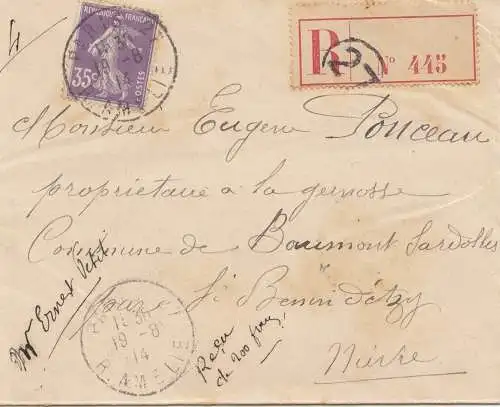 4
REPUBLIQUE FRANÇAISE
35c POSTES
R No 445
Monsieur Eugene Ponceau
propriétaire a la genosse
Commune de Beaumont Sardolles
par St Benin d'Azy
Nièvre
Mr Ernest Petit
PARIS
19 -8
14
R. AMELIE
Reçu
de 200 francs